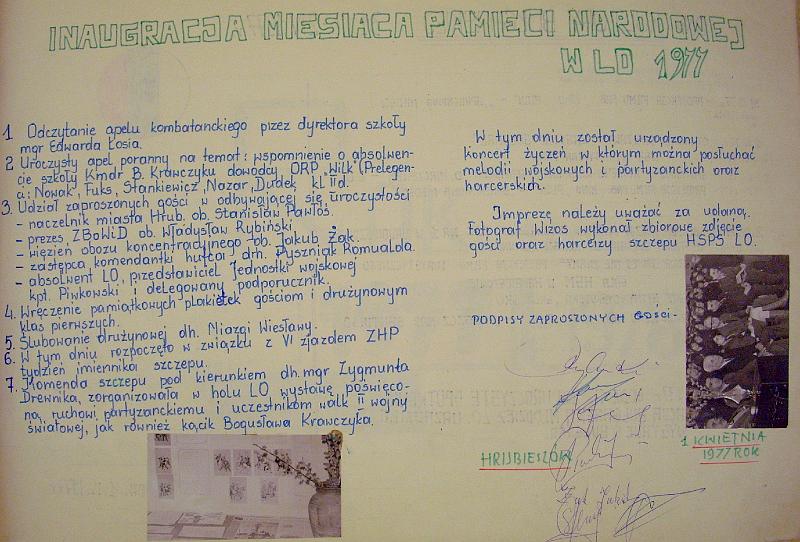 INAUGRACJA MIESIĄCA PAMIĘCI NARODOWEJ
W LO 1977
1 Odczytanie apelu kombatanckiego przez dyrektora szkoły
mgr Edwarda Łosia.
2 Uroczysty apel poranny na temat: wspomnienie o absolwen-
cie szkoły Kmdr B. Krawczyku dowódcy ORP „Wilk" (Prelegen-
ci: Nowak, Fuks, Stankiewicz, Nazar, Dudek kl II d.
3. Udział zaproszonych gości w odbywającej się uroczystości
- naczelnik miasta Hrub. ob. Stanisław Pawłoś.
- prezes ZBoWiD ob. Władysław Rybiński
- więzień obozu koncentracyjnego ob. Jakub Żak.
- zastępca komendantki hufca drh. Dyszniak Romualda.
- absolwent LO, przedstawiciel Jednostki wojskowej
kpt. Piwkowski i delegowany podporucznik.
4. Wręczenie pamiątkowych plakietek gościom i drużynowym
klas pierwszych.
5. Ślubowanie drużynowej dh. Niazgi Wiesławy.
6. W tym dniu rozpoczęto w związku z VI zjazdem ZHP
tydzień imiennika szczepu.
7. Komenda szczepu pod kierunkiem dh. mgr Zygmunta
Drewnika, zorganizowała w holu LO wystawę poświęco-
ną ruchowi partyzanckiemu i uczestnikom walk II wojny
światowej, jak również kącik Bogusława Krawczyka.
W tym dniu został urządzony
koncert życzeń w którym można posłuchać
melodii wojskowych i partyzanckich oraz
harcerskich.
Imprezę należy uważać za udaną.
Fotograf Wizos wykonał zbiorowe zdjęcie
gości oraz harcerzy szczepu HSPS LO.
PODPISY ZAPROSZONYCH GOŚCI-
HRUBIESZÓW
1 KWIETNIA
1977 ROK